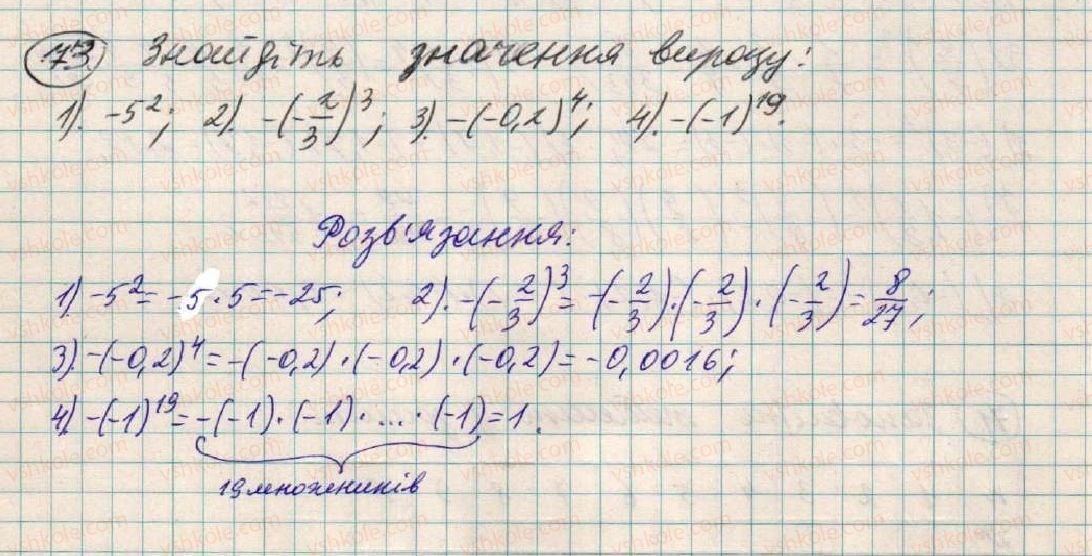 73 Знайдіть значення виразу:
1). -5²; 2). -(-2/3)³; 3). -(-0,2)⁴; 4). -(-1)¹⁹.
Розв'язання:
1) -5² = -5 · 5 = -25; 2). -(-2/3)³ = -(-2/3) · (-2/3) · (-2/3) = 8/27;
3). -(-0,2)⁴ = -(-0,2) · (-0,2) · (-0,2) = -0,0016;
4) -(-1)¹⁹ = -(-1) · (-1) · ... · (-1) = 1.
19 множеників